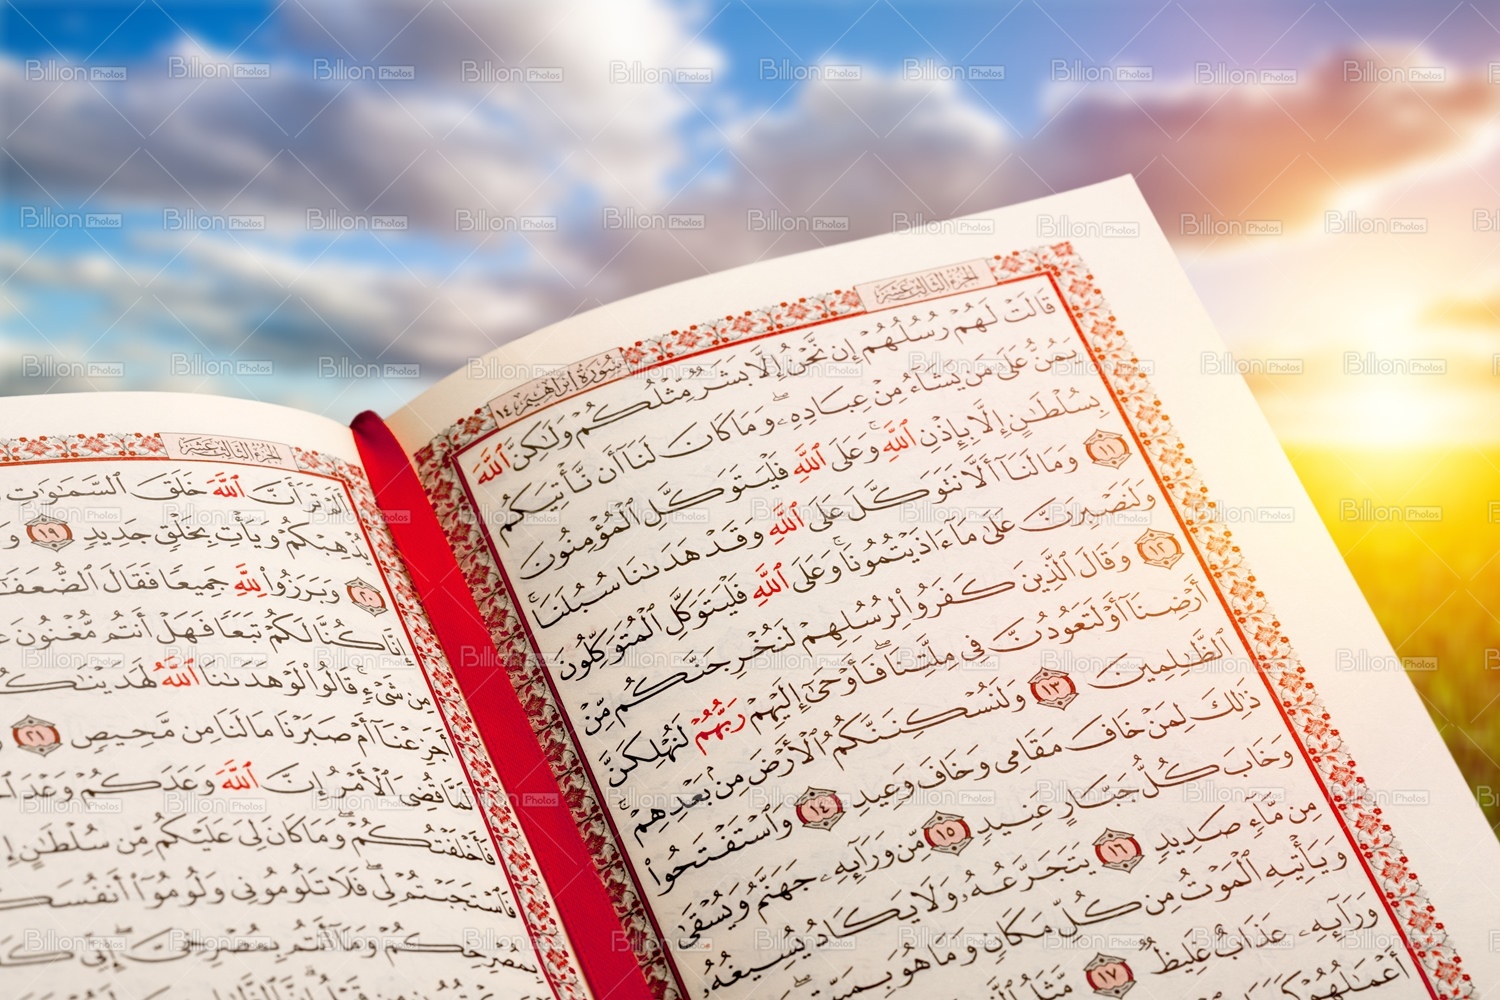 الجزء الثالث عشر
سورة إبراهيم ١٤
قَالَتْ لَهُمْ رُسُلُهُمْ إِن نَّحْنُ إِلَّا بَشَرٌ مِّثْلُكُمْ وَلَٰكِنَّ ٱللَّهَ
يَمُنُّ عَلَىٰ مَن يَشَآءُ مِنْ عِبَادِهِۦ ۖ وَمَا كَانَ لَنَآ أَن نَّأْتِيَكُم
بِسُلْطَٰنٍ إِلَّا بِإِذْنِ ٱللَّهِ ۚ وَعَلَى ٱللَّهِ فَلْيَتَوَكَّلِ ٱلْمُؤْمِنُونَ
١١ وَمَا لَنَآ أَلَّا نَتَوَكَّلَ عَلَى ٱللَّهِ وَقَدْ هَدَىٰنَا سُبُلَنَا ۚ
وَلَنَصْبِرَنَّ عَلَىٰ مَآ ءَاذَيْتُمُونَا ۚ وَعَلَى ٱللَّهِ فَلْيَتَوَكَّلِ ٱلْمُتَوَكِّلُونَ
١٢ وَقَالَ ٱلَّذِينَ كَفَرُوا۟ لِرُسُلِهِمْ لَنُخْرِجَنَّكُم مِّنْ
أَرْضِنَآ أَوْ لَتَعُودُنَّ فِى مِلَّتِنَا ۖ فَأَوْحَىٰٓ إِلَيْهِمْ رَبُّهُمْ لَنُهْلِكَنَّ
ٱلظَّٰلِمِينَ ١٣ وَلَنُسْكِنَنَّكُمُ ٱلْأَرْضَ مِنۢ بَعْدِهِمْ ۚ
ذَٰلِكَ لِمَنْ خَافَ مَقَامِى وَخَافَ وَعِيدِ ١٤ وَٱسْتَفْتَحُوا۟
وَخَابَ كُلُّ جَبَّارٍ عَنِيدٍ ١٥ مِّن وَرَآئِهِۦ جَهَنَّمُ وَيُسْقَىٰ
مِن مَّآءٍ صَدِيدٍ ١٦ يَتَجَرَّعُهُۥ وَلَا يَكَادُ يُسِيغُهُۥ
وَيَأْتِيهِ ٱلْمَوْتُ مِن كُلِّ مَكَانٍ وَمَا هُوَ بِمَيِّتٍ
وَرَآئِهِۦ عَذَابٌ غَلِيظٌ ١٧ مَّثَلُ
أَعْمَٰلُهُمْ
الجزء الثالث عشر
أَلَمْ تَرَ أَنَّ ٱللَّهَ خَلَقَ ٱلسَّمَٰوَٰتِ
يُذْهِبْكُمْ وَيَأْتِ بِخَلْقٍ جَدِيدٍ ١٩
٢٠ وَبَرَزُوا۟ لِلَّهِ جَمِيعًا فَقَالَ ٱلضُّعَفَٰٓ
إِنَّا كُنَّا لَكُمْ تَبَعًا فَهَلْ أَنتُم مُّغْنُونَ
مِن شَىْءٍ ۚ قَالُوا۟ لَوْ هَدَىٰنَا ٱللَّهُ لَهَدَيْنَٰكُ
أَجَزِعْنَآ أَمْ صَبَرْنَا مَا لَنَا مِن مَّحِيصٍ ٢١
لَمَّا قُضِىَ ٱلْأَمْرُ إِنَّ ٱللَّهَ وَعَدَكُمْ وَعْدَ
فَأَخْلَفْتُكُمْ ۖ وَمَا كَانَ لِىَ عَلَيْكُم مِّن سُلْطَٰنٍ
فَٱسْتَجَبْتُمْ لِى ۖ فَلَا تَلُومُونِى وَلُومُوٓا۟ أَنفُسَكُ
بِمُصْرِخِكُمْ وَمَآ أَنتُم بِمُصْرِخِىَّ ۖ إِنِّى